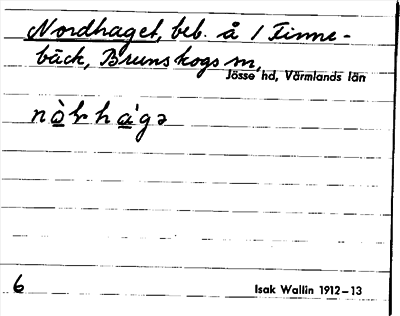 Nordhaget, beb. å 1 Finne-
bäck, Brunskogs sn,
Jösse hd, Värmlands län
6
Isak Wallin 1912–13